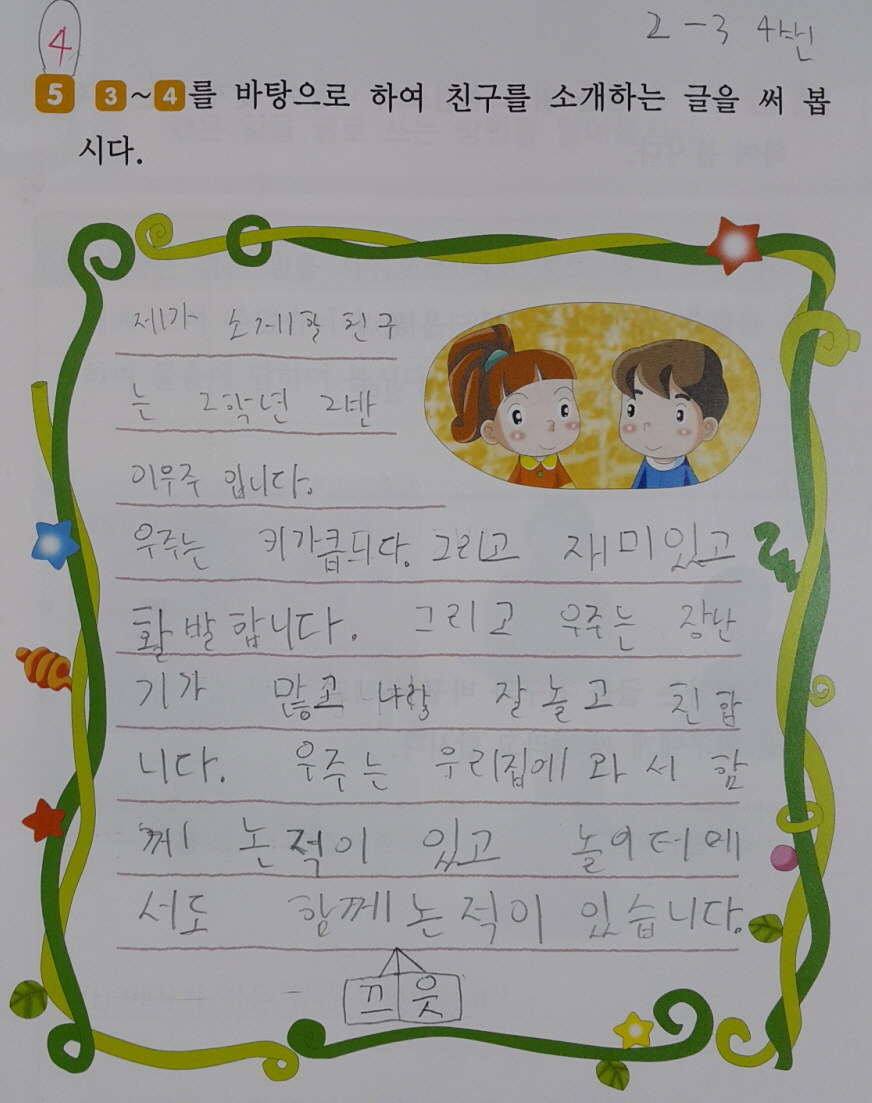 4
2-3 4번
5 3~4를 바탕으로 하여 친구를 소개하는 글을 써 봅
시다.
제가 소게할 친구
는 2학년 2반
이우주 입니다.
우주는 키가큽니다. 그리고 재미있고
활발합니다. 그리고 우주는 장난
기가 많고 나랑 잘놀고 친합
니다. 우주는 우리집에 와서 함
께 논적이 있고 놀이터에
서도 함께 논적이 있습니다.
끄읏